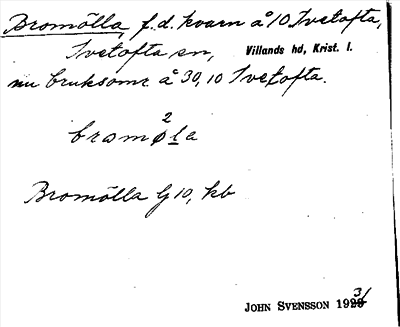 Bromölla, f.d. kvarn å 10 Tvetofta,
Tvetofta sn, Villands hd, Krist. l.
nu bruksomr å 30, 10 Tvetofta.
2
bromøla
Bromölla G 10, kb
JOHN SVENSSON 1931